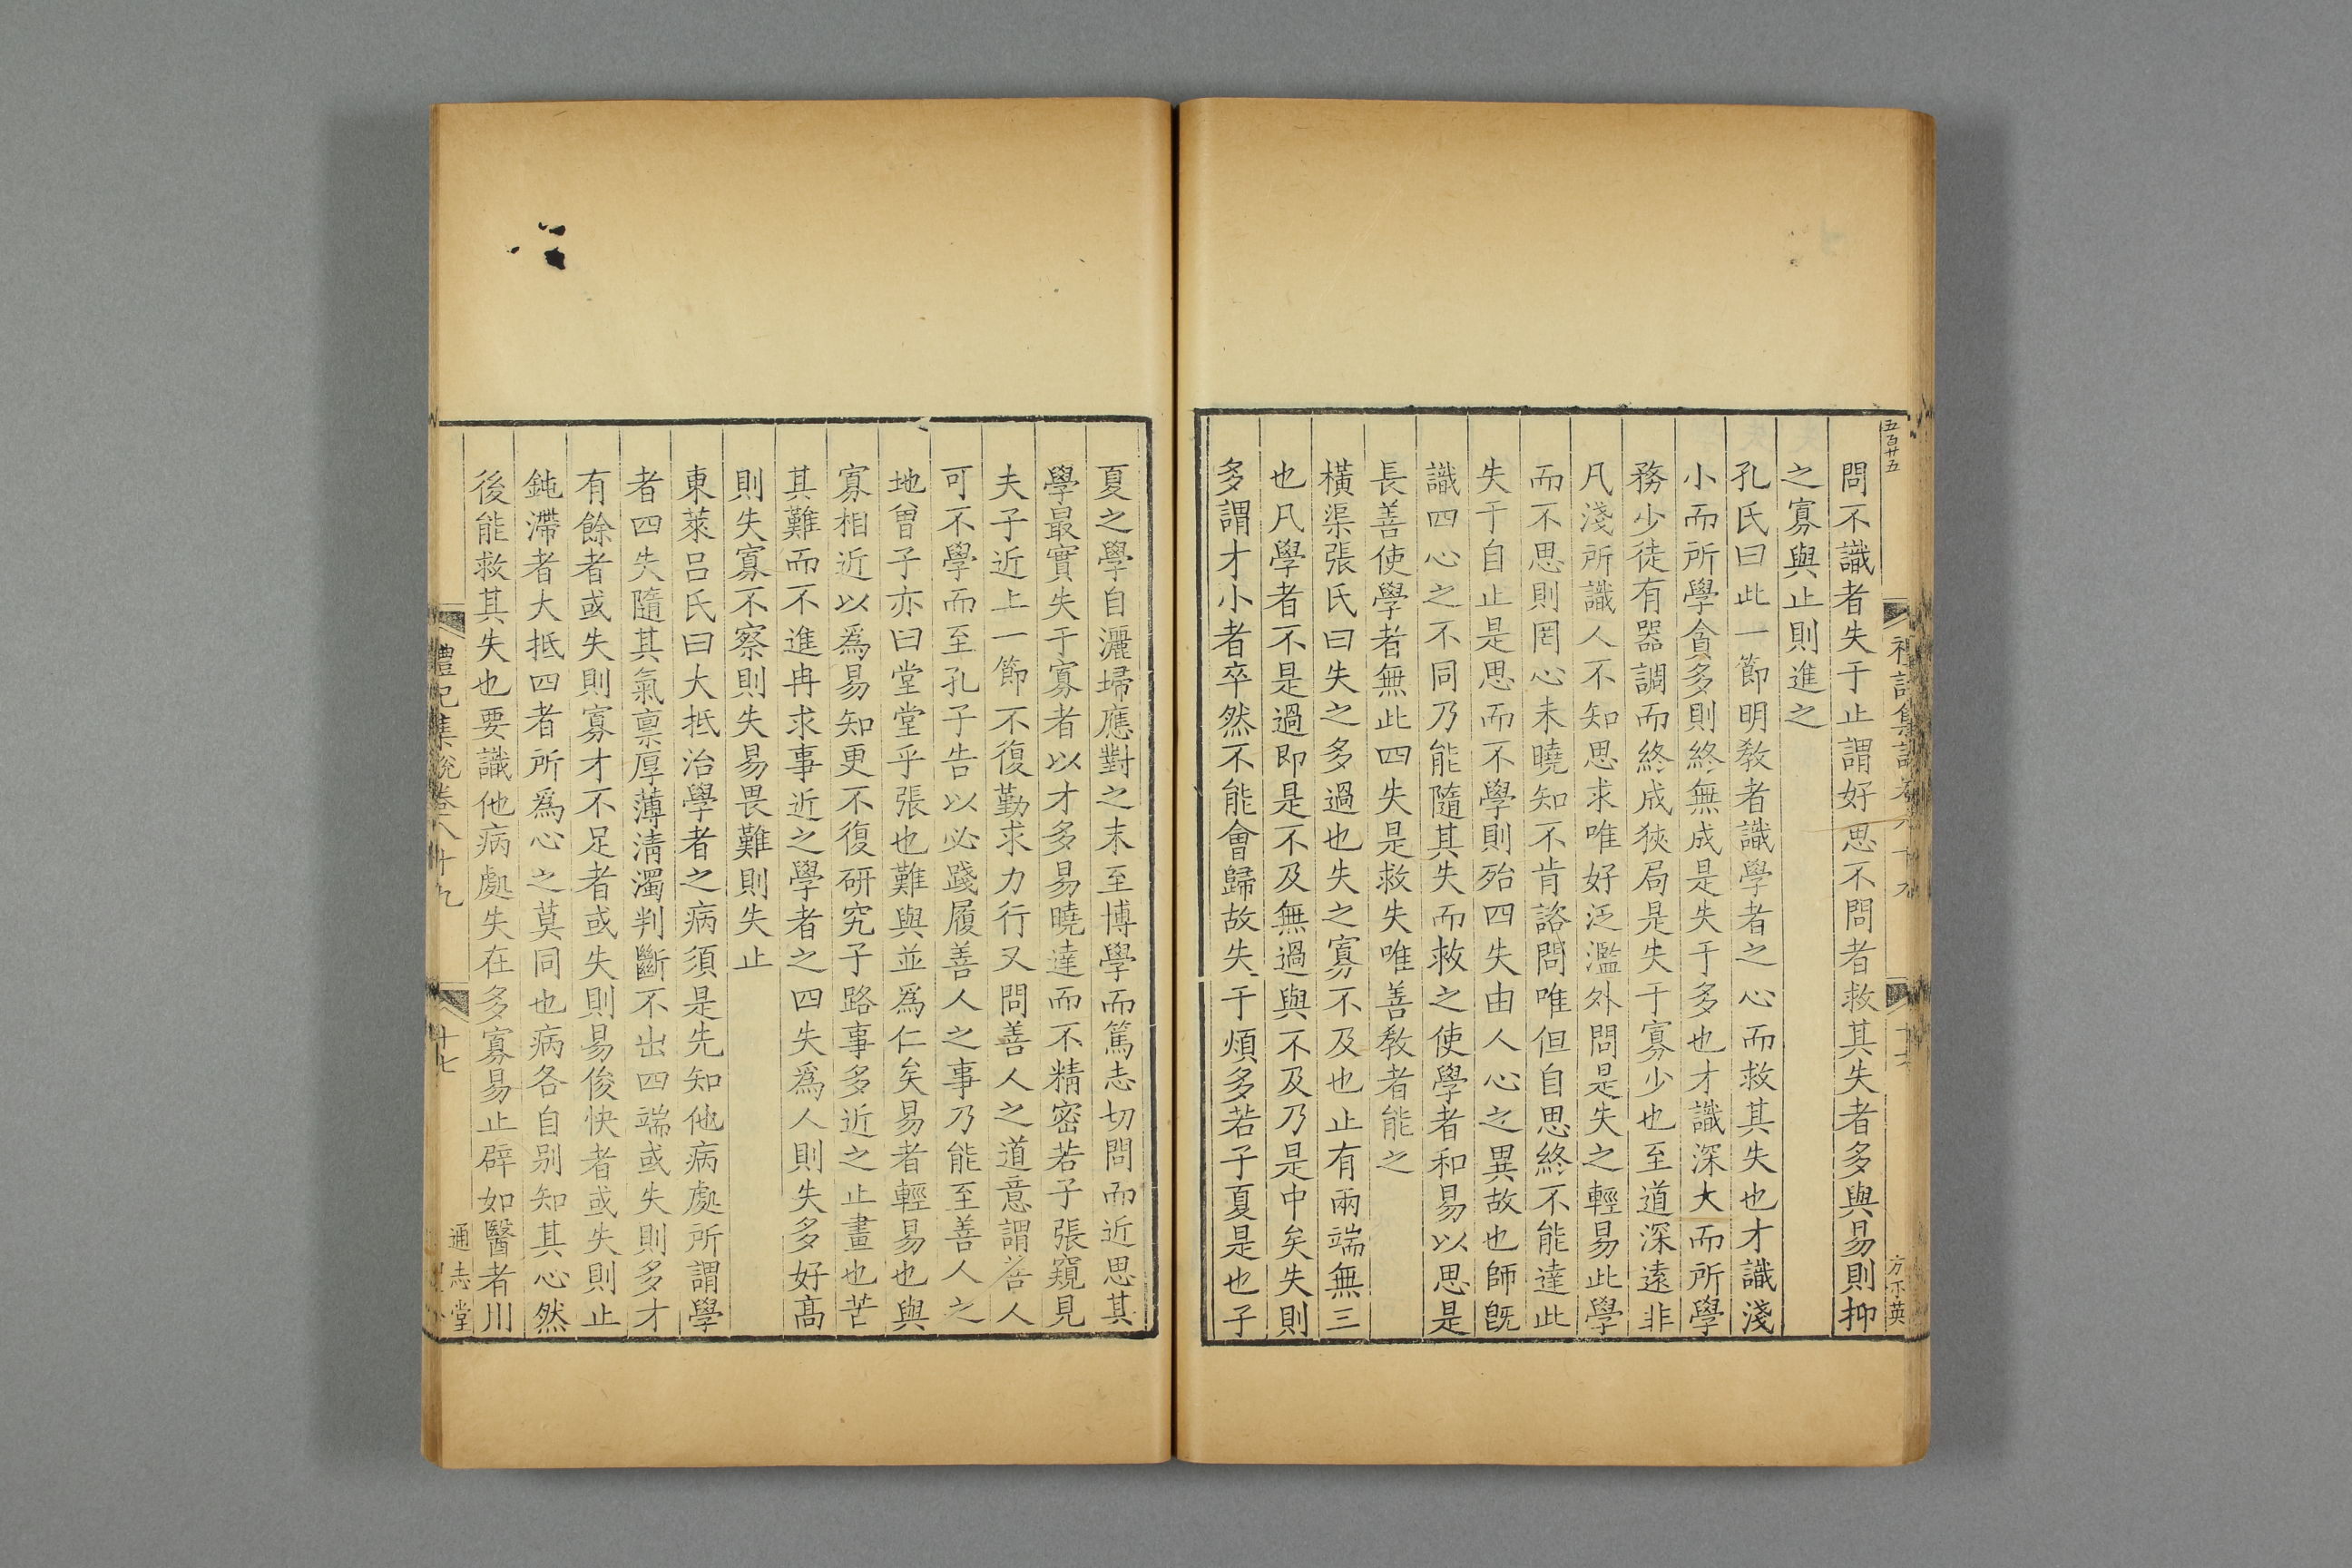 五百廿五
問不識者失于止謂好思不問者救其失者多與易則抑
之寡與止則進之
孔氏曰此一節明教者識學者之心而救其失也才識淺
小而所學貪多則終無成是失于多也才識深大而所學
務少徒有器調而終成狹局是失于寡少也至道深遠非
凡淺所識人不知思求唯好泛濫外問是失之輕易此學
而不思則罔心未曉知不肯諮問唯但自思終不能達此
失于自止是思而不學則殆四失由人心之異故也師旣
識四心之不同乃能隨其失而救之使學者和易以思是
長善使學者無此四失是救失唯善教者能之
橫渠張氏曰失之多過也失之寡不及也止有兩端無三
也凡學者不是過即是不及無過與不及乃是中矣失則
多謂才小者卒然不能會歸故失于煩多若子夏是也子
夏之學自灑埽應對之末至博學而篤志切問而近思其
學最實失于寡者以才多易曉達而不精密若子張窺見
夫子近上一節不復勤求力行又問善人之道意謂善人
可不學而至孔子告以必踐履善人之事乃能至善人之
地曾子亦曰堂堂乎張也難與並爲仁矣易者輕易也與
寡相近以爲易知更不復研究子路事多近之止畫也苦
其難而不進冉求事近之學者之四失爲人則失多好高
則失寡不察則失易畏難則失止
東萊呂氏曰大抵治學者之病須是先知他病處所謂學
者四失隨其氣禀厚薄清濁判斷不出四端或失則多才
有餘者或失則寡才不足者或失則易俊快者或失則止
鈍滯者大抵四者所爲心之莫同也病各自別知其心然
後能救其失也要識他病處失在多寡易止辟如醫者川
禮記集說卷八十九
十七
通志堂